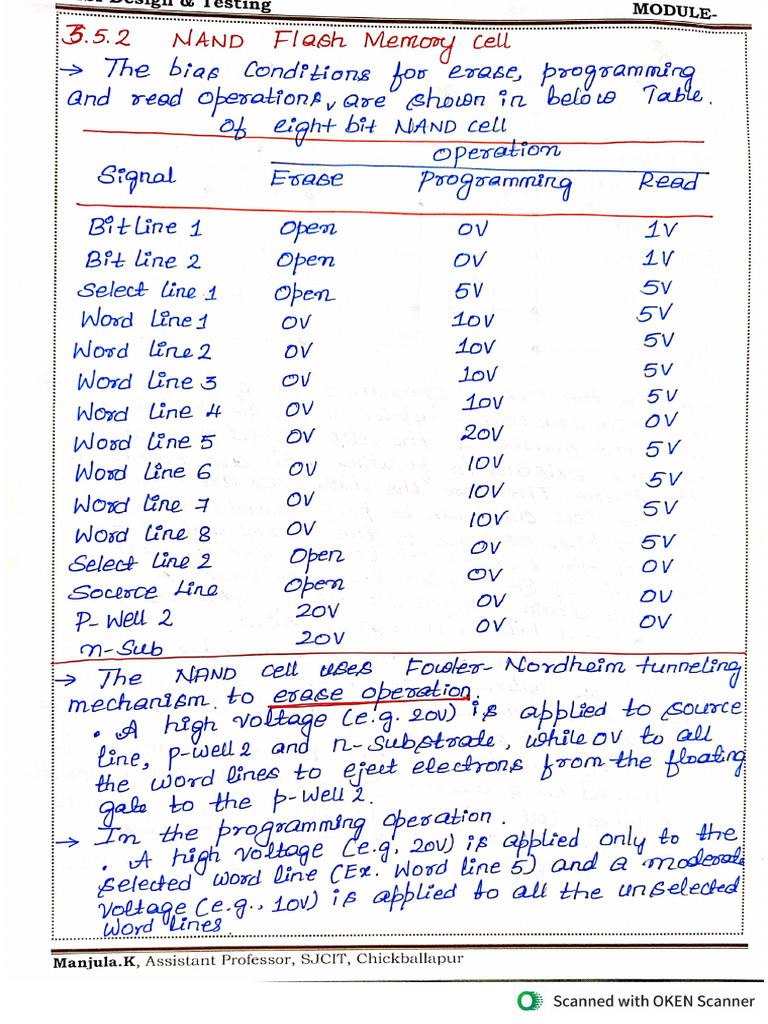 Design & Testing
MODULE-
3.5.2 NAND Flash Memory cell
→ The bias Conditions for erase, programming
and read operations, are shown in below Table.
of eight bit NAND cell
Operation
Signal Erase Programming Read
Bitline 1 Open 0V 1V
Bit line 2 Open 0V 1V
Select line 1 Open 5V 5V
Word line 1 0V 10V 5V
Word line 2 0V 10V 5V
Word line 3 0V 10V 5V
Word line 4 0V 10V 5V
Word line 5 0V 20V 0V
Word line 6 0V 10V 5V
Word line 7 0V 10V 5V
Word line 8 0V 10V 5V
Select line 2 Open 0V 5V
Socerce Line Open 0V 0V
P-Well 2 20V 0V 0V
n-Sub 20V 0V 0V
→ The NAND cell uses Fowler-Nordheim tunneling
mechanism to erase operation.
. A high voltage (e.g. 20V) is applied to source
line, p-well 2 and n-substrate, while 0V to all
the word lines to eject electrons from the floating
gate to the p-well 2.
→ In the programming operation.
. A high voltage (e.g, 20V) is applied only to the
selected word line (Ex. Word line 5) and a moderate
voltage (e.g., 10V) is applied to all the unselected
word lines.
Manjula.K, Assistant Professor, SJCIT, Chickballapur
Scanned with OKEN Scanner